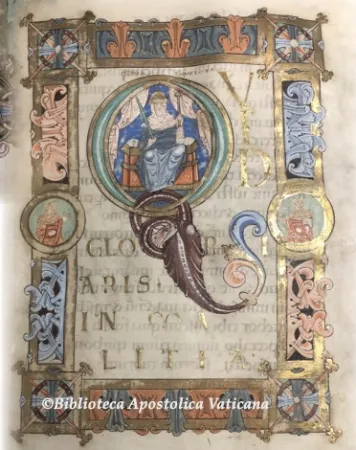 QV
ID
GLORI
ARIS
IN MA
LITIA
©Biblioteca Apostolica Vaticana